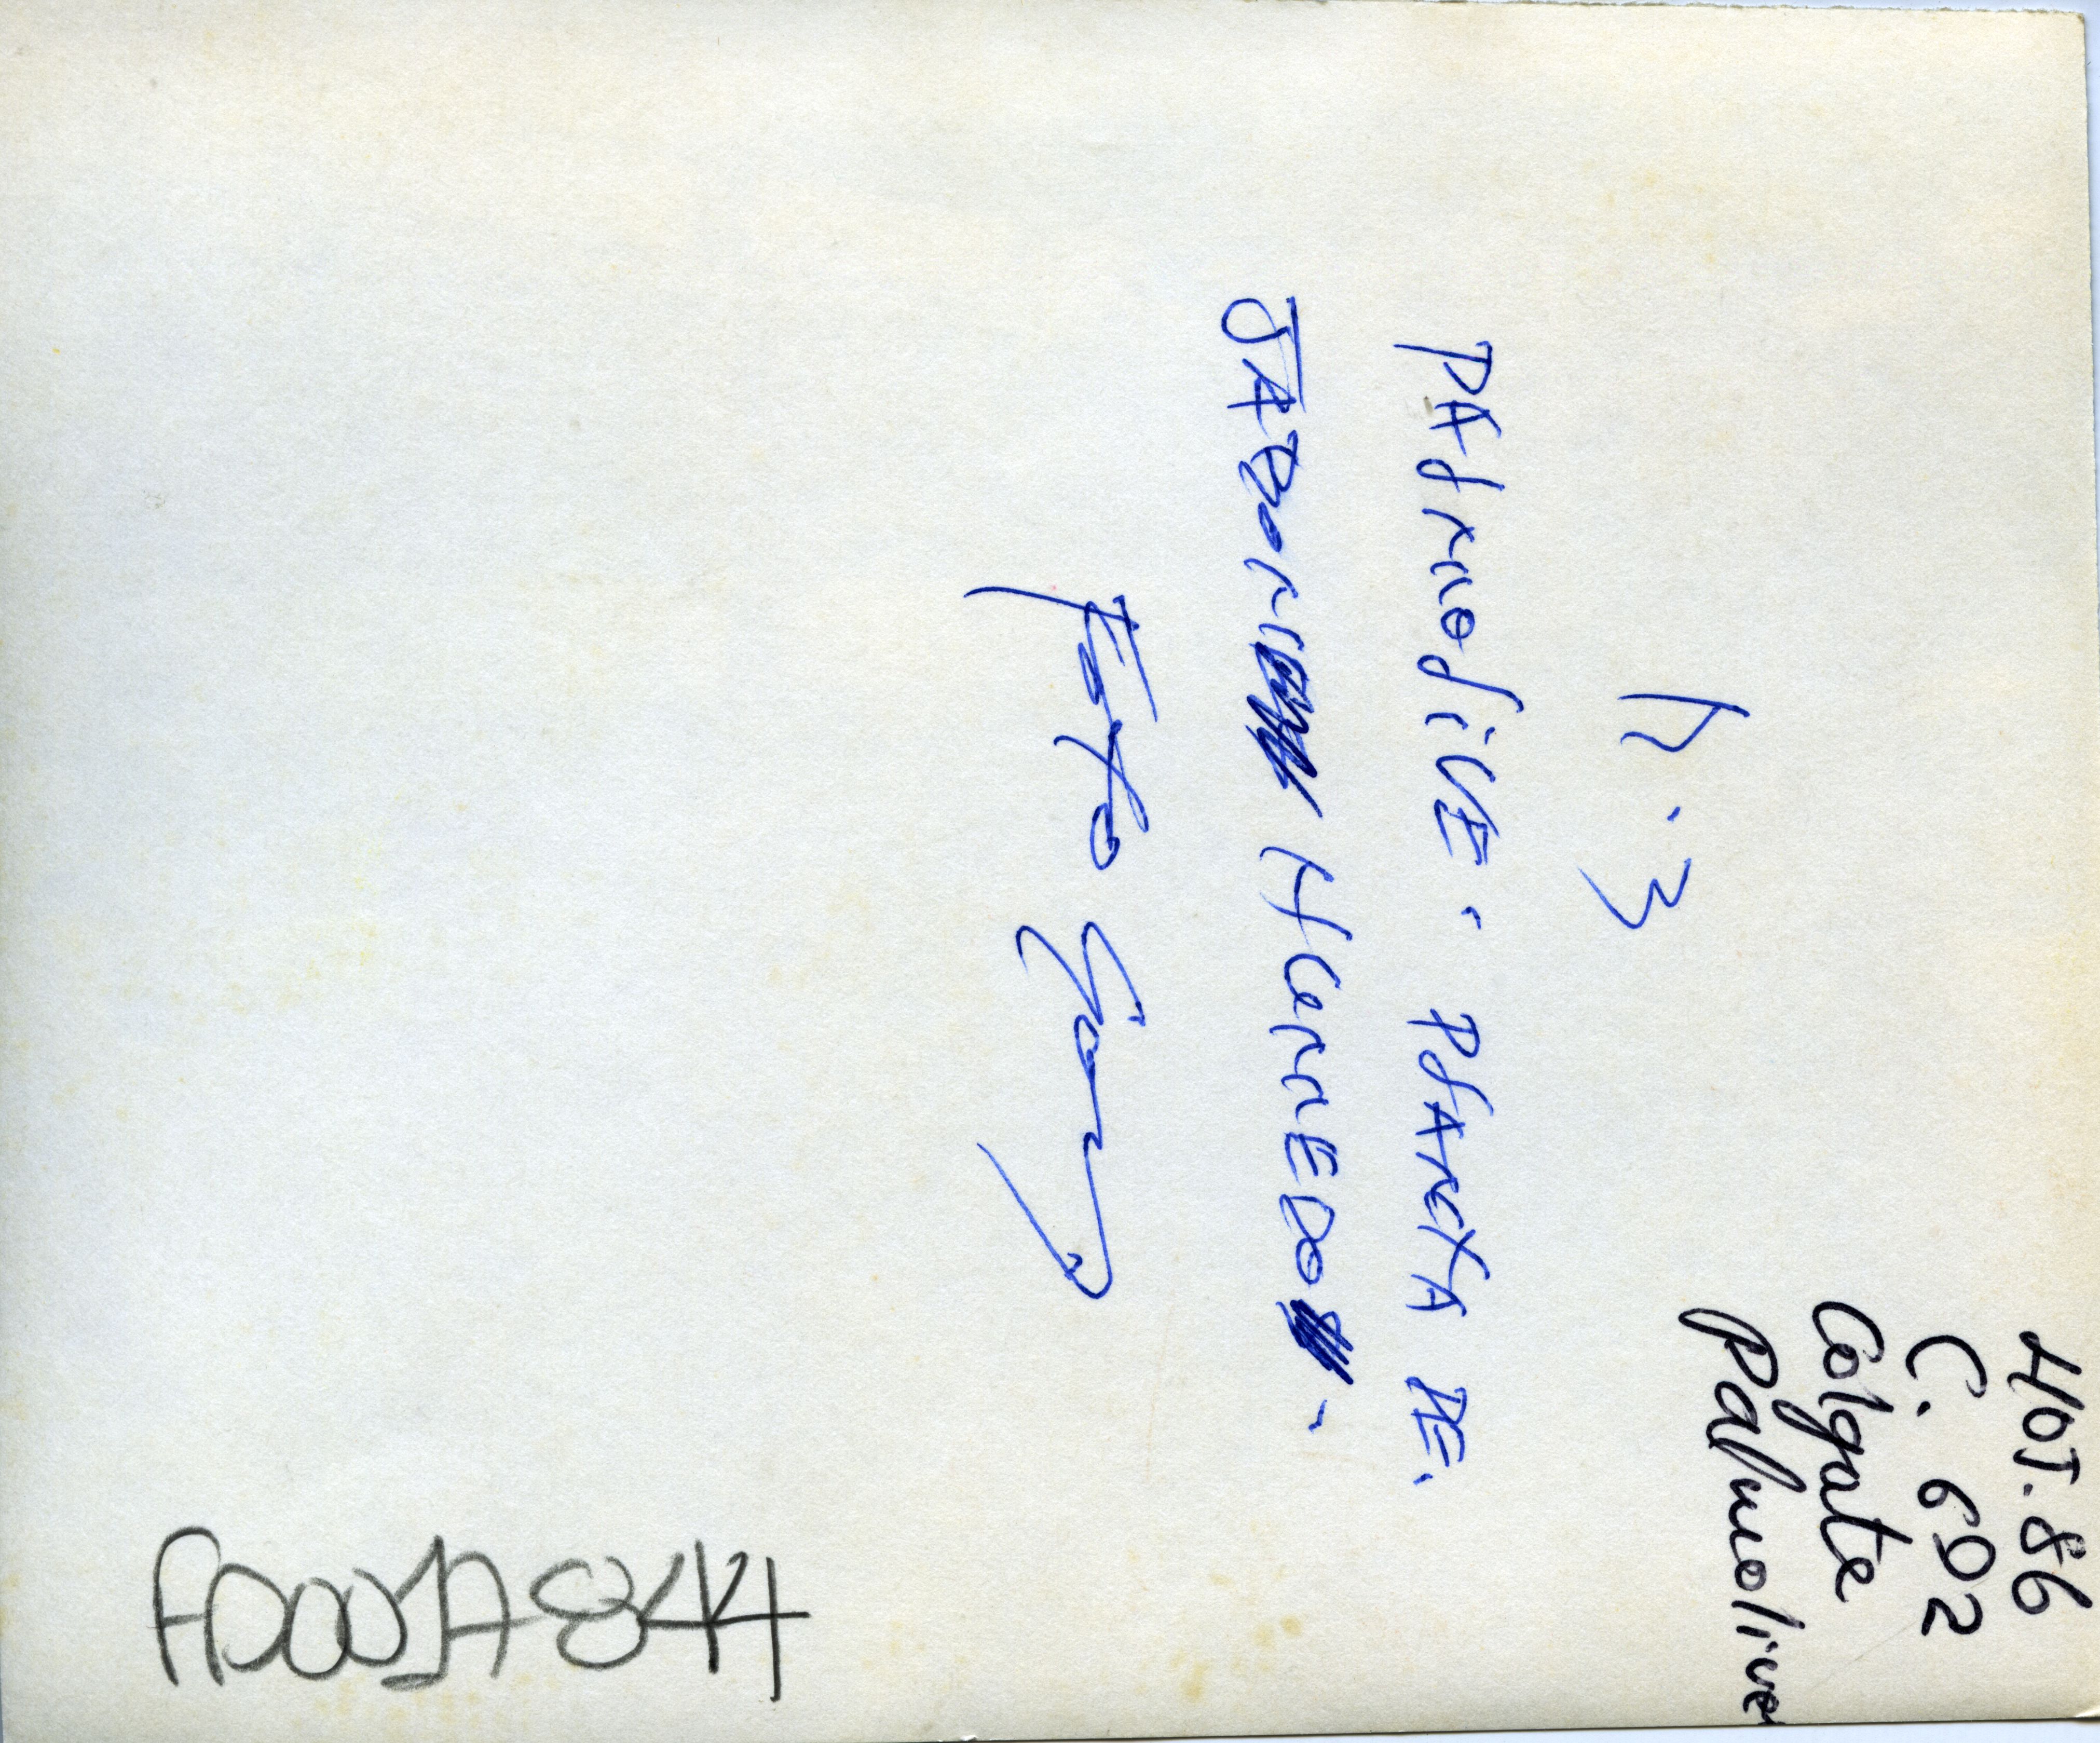 HOJ. 86
C. 692
Colgate
Palmolive
PALMOLIVE. PLANTA DE.
JABON HUMEDO.
FOTO
FD001A844